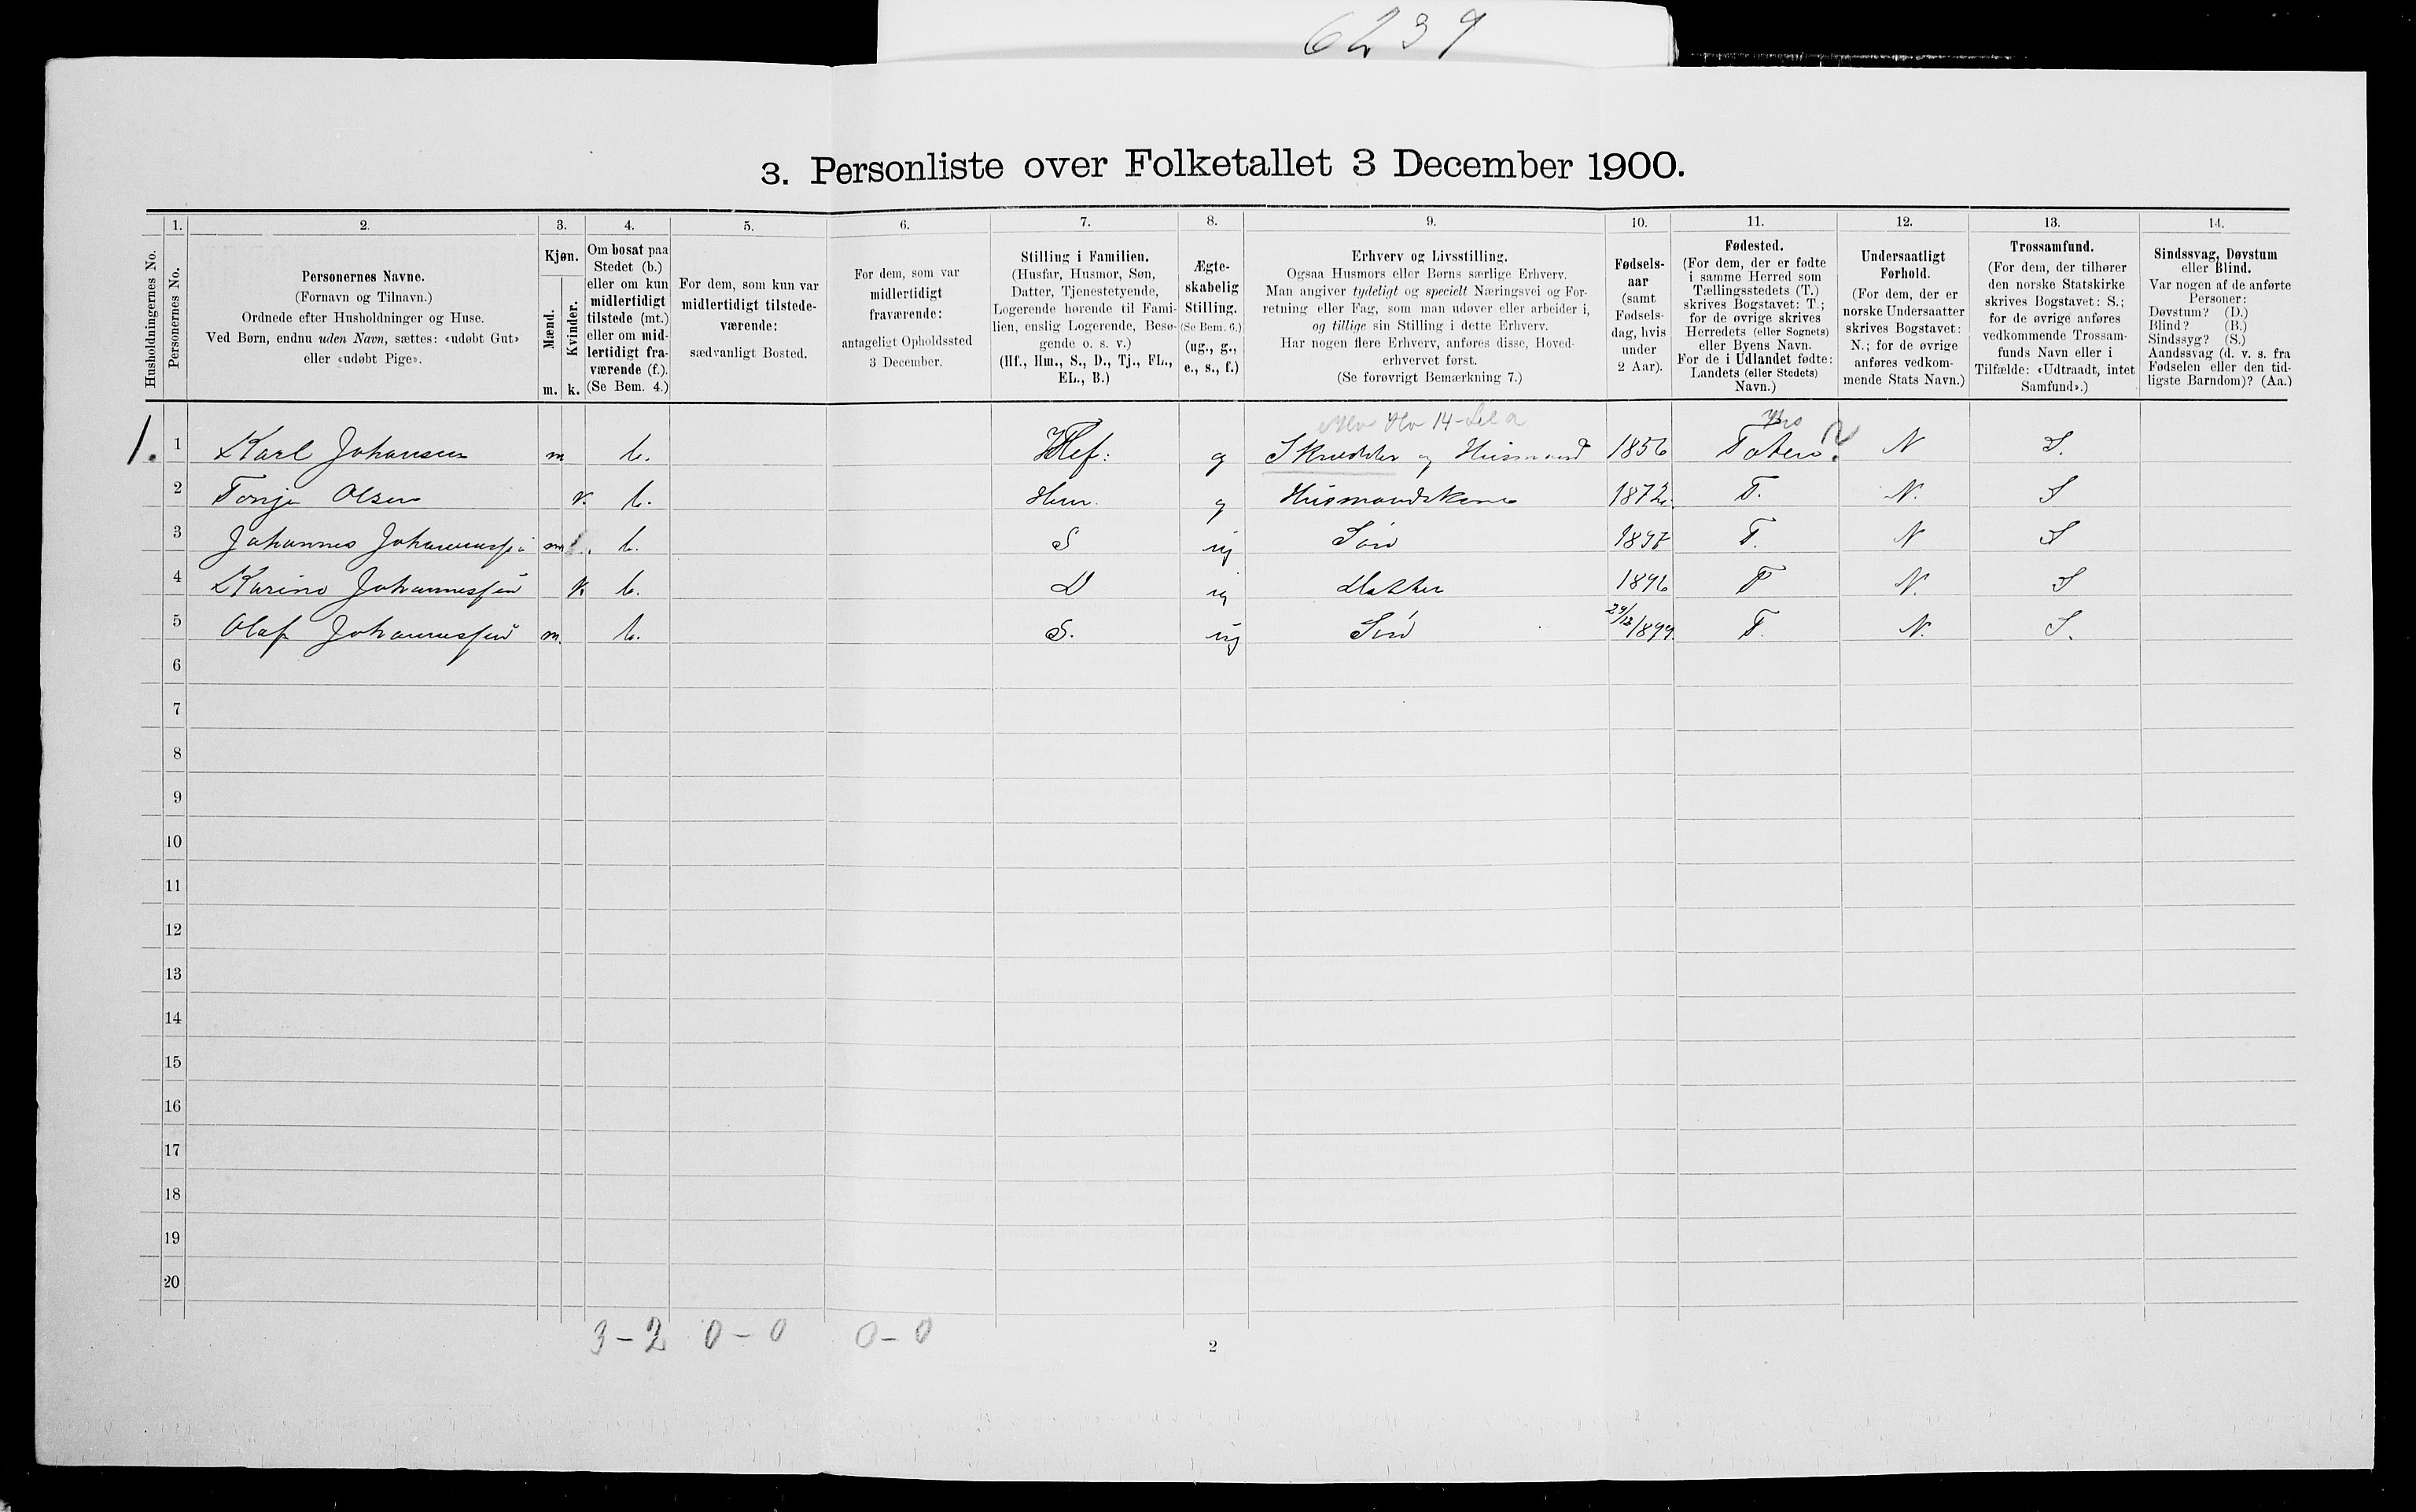 6239
3. Personliste over Folketallet 3 December 1900.
Husholdningernes No.
1.
Personernes No.
2.
Personernes Navne.
(Fornavn og Tilnavn.)
Ordnede efter Husholdninger og Huse.
Ved Børn, endnu uden Navn, sættes: «udøbt Gut»
eller «udøbt Pige».
3.
Kjøn.
Mænd.
Kvinder.
m. k.
4.
Om bosat paa
Stedet (b.)
eller om kun
midlertidigt
tilstede (mt.)
eller om mid-
lertidigt fra-
værende (f.).
(Se Bem. 4.)
5.
For dem, som kun var
midlertidigt tilstede-
værende:
sædvanligt Bosted.
6.
For dem, som var
midlertidigt
fraværende:
antageligt Opholdssted
3 December.
7.
Stilling i Familien.
(Husfar, Husmor, Søn,
Datter, Tjenestetyende,
Logerende hørende til Fami-
lien, enslig Logerende, Besø-
gende o. s. v.)
(Hf., Hm., S., D., Tj., FL.,
EL., B.)
8.
Ægte-
skabelig
Stilling.
(Se Bem. 6.)
(ug., g.,
e., s., f.)
9.
Erhverv og Livsstilling.
Ogsaa Husmors eller Børns særlige Erhverv.
Man angiver tydeligt og specielt Næringsvei og For-
retning eller Fag, som man udøver eller arbeider i,
og tillige sin Stilling i dette Erhverv.
Har nogen flere Erhverv, anføres disse, Hoved-
erhvervet først.
(Se forøvrigt Bemærkning 7.)
10.
Fødsels-
aar
(samt
Fødsels-
dag, hvis
under
2 Aar).
11.
Fødested.
(For dem, der er fødte
i samme Herred som
Tællingsstedets (T.)
skrives Bogstavet: T.;
for de øvrige skrives
Herredets (eller Sognets)
eller Byens Navn.
For de i Udlandet fødte:
Landets (eller Stedets)
Navn.)
12.
Undersaatligt
Forhold.
(For dem, der er
norske Undersaatter
skrives Bogstavet:
N.; for de øvrige
anføres vedkom-
mende Stats Navn.)
13.
Trossamfund.
(For dem, der tilhører
den norske Statskirke
skrives Bogstavet: S.;
for de øvrige anføres
vedkommende Trossam-
funds Navn eller i
Tilfælde: «Udtraadt, intet
Samfund».)
14.
Sindssvag, Døvstum
eller Blind.
Var nogen af de anførte
Personer:
Døvstum? (D.)
Blind? (B.)
Sindssyg? (S.)
Aandssvag (d. v. s. fra
Fødselen eller den tid-
ligste Barndom)? (Aa.)
14-
1. 1 Karl Johansen m b. Hf: g Skrædder og Husmand 1856 ? N S.
2 Tonje Olsen k. b. Hm. g Husmandskone 1872. T. N. S
3 Johannes m b. S ug Søn T. N S
4 Karine Johannessen k. b. D ug Datter 1896 T N. S
5 Olaf Johannessen m. b. S. ug Søn 29/12 1899. T. N. S.
6
7
8
9
10
11
12
13
14
15
16
17
18
19
20
3-2 0-0 0-0
2